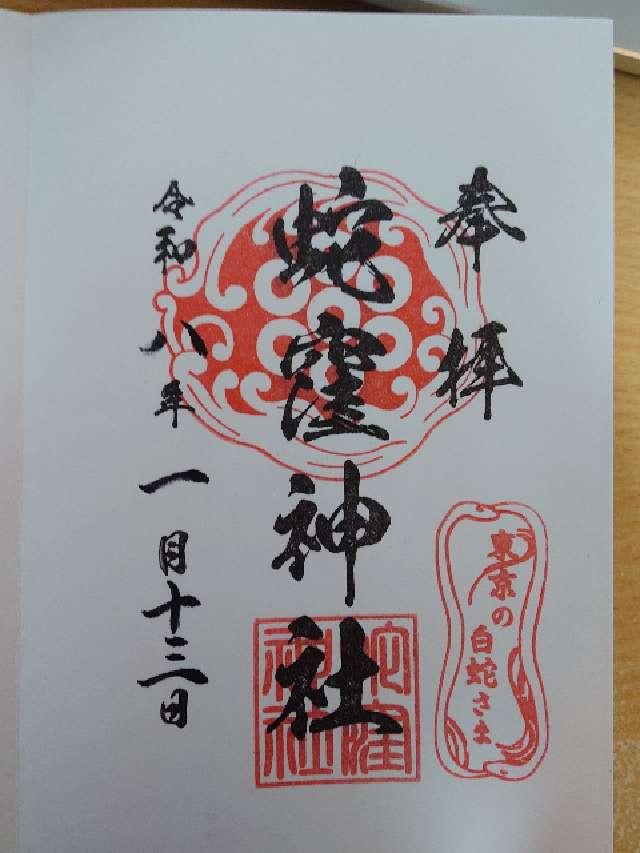 奉拝
蛇窪神社
令和八年一月十三日
東京の
白蛇さま
蛇窪
神社